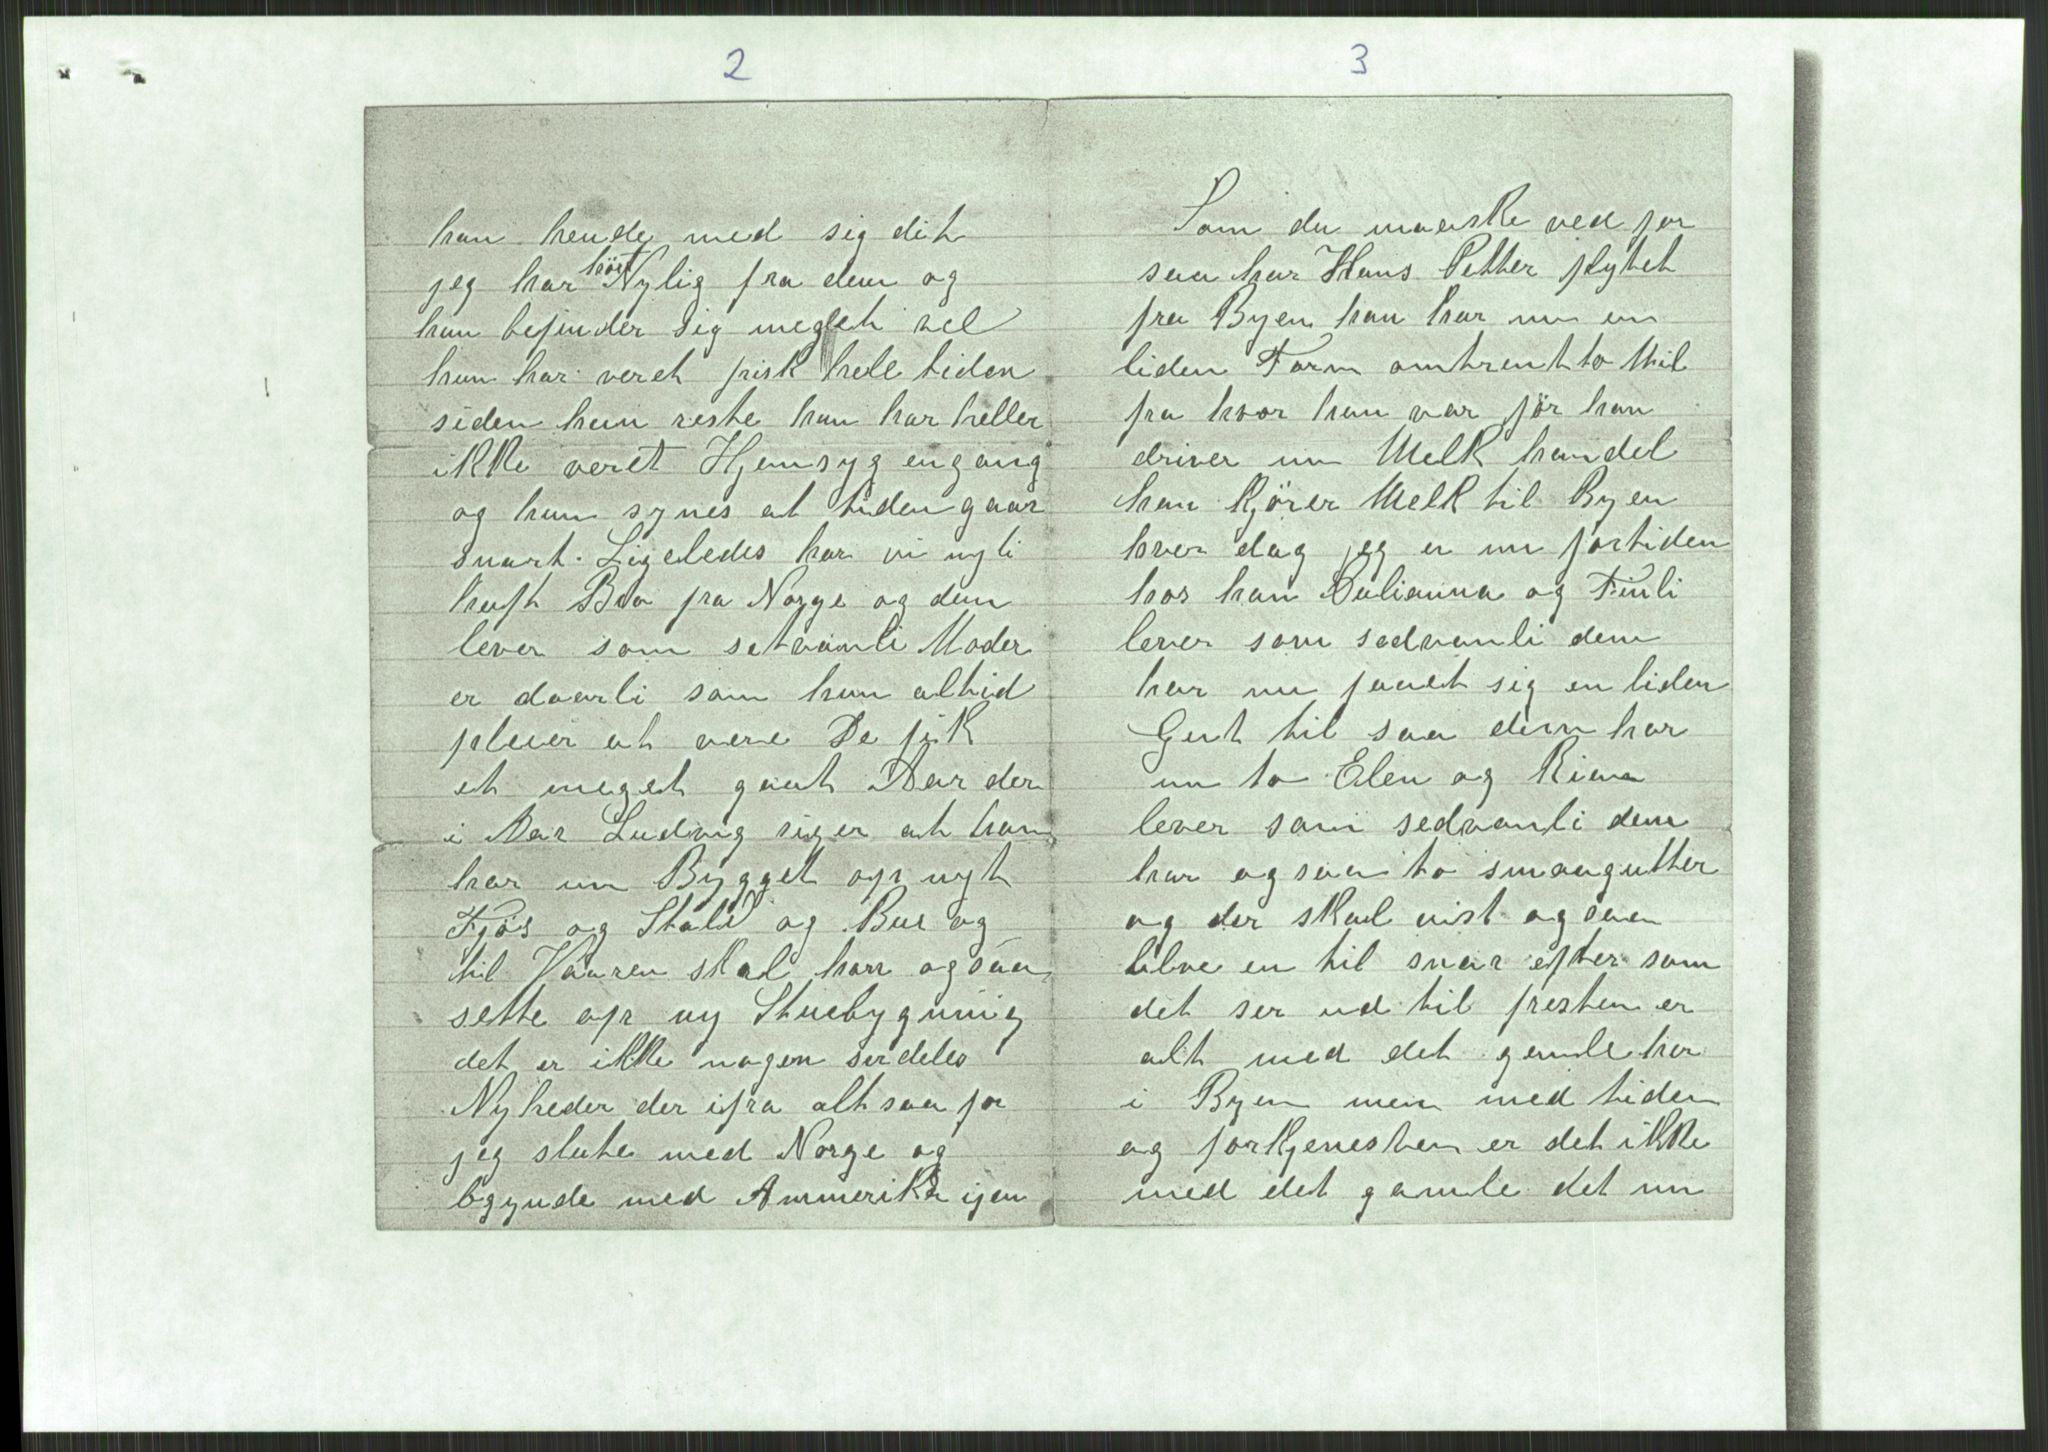 2
han hende med sig dit
jeg har hört Nylig fra dem og
hun befinder sig meget vel
hun har veret frisk hele tiden
siden hun reste hun har heller
ikke veret Hjemsyg engang
og hun synes at tiden gaar
snart. Ligeledes har vi nyli
haft Brev fra Norge og dem
lever som setvanli Moder
er daarli som hun altid
pleier at vere De fik
et meget gaat Aar der
i Aar Ludvig siger at han
har nu Bygget op nyt
Fjös og Stald og Bur og
til Vaaren skal han ogsaa
sette op ny Stuebygning
det er ikke nogen serdeles
Nyheder der ifra altsaa for
jeg slute med Norge og
bgynde med Ammerika igen
3
Som du maaske ved for
saa har Hans Petter flytet
fra Byen han har nu en
liden Farm omtrent to Mil
fra hvor han var för han
driver nu Melk handel
han Kjörer Melk til Byen
hver dag jeg er nu fortiden
hos han Julianna og Finli
lever som sedvanli dem
har nu faaet sig en liden
Gut til saa dem har
nu to Elen og Rien
lever som sedvanli dem
har ogsaa to smaagutter
og der skal vist ogsaa
blive en til snar efter som
det ser ud til presten er
alt med det gamle her
i Byen men med tiden
og forkjenesten er det ikke
med det gamle det nu